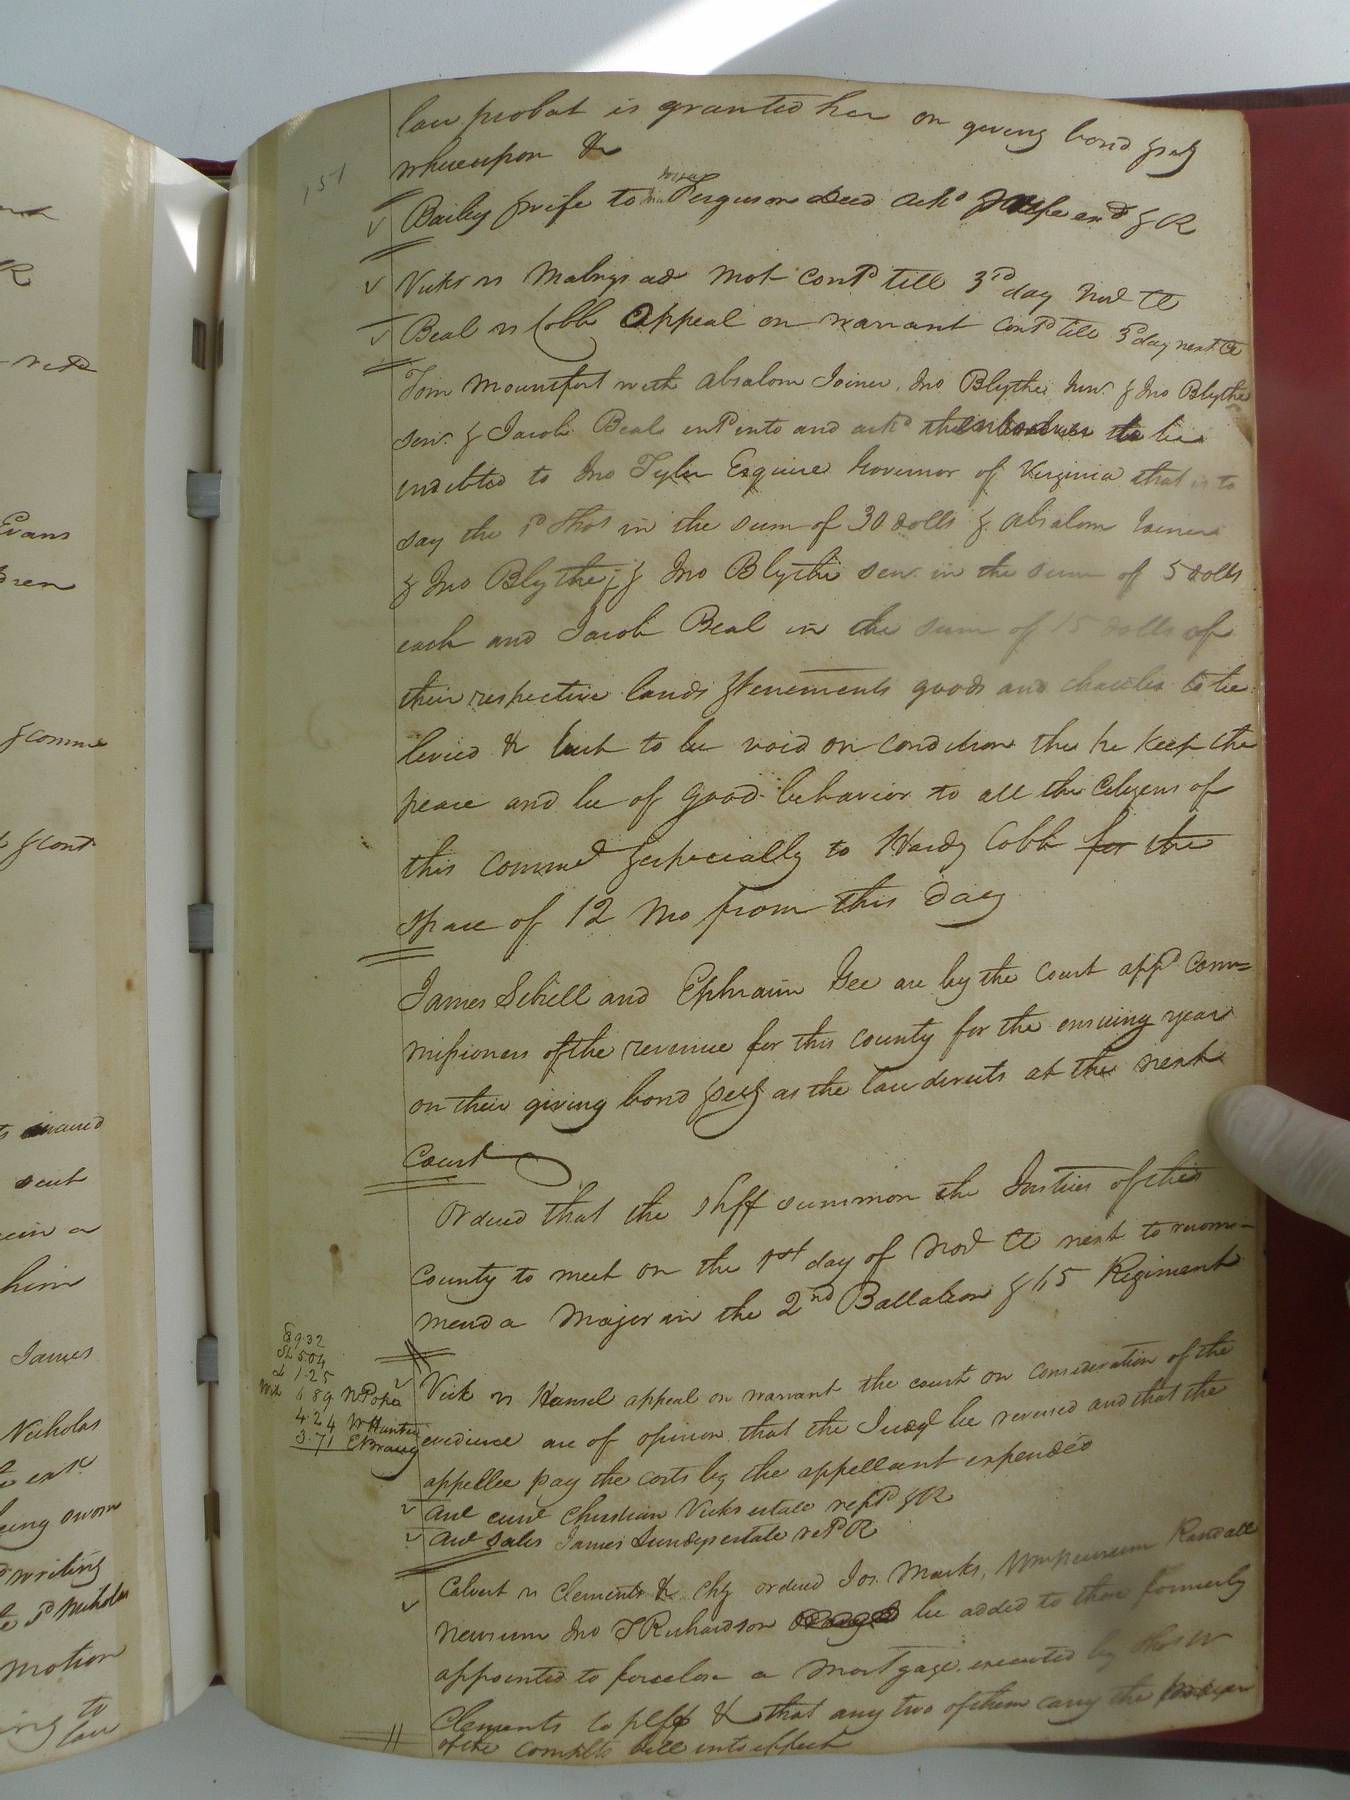 151
law probat is granted her on giving bond &sey
whereupon &c
Bailey &wife to Ferguson deed ackd & wife exd & R
Vicks vs Mabrys ad mot contd till 3rd day next Ct
Beal vs Cobb Appeal on warrant contd till 3d day next Ct
Tom Mountfort with Absalom Joiner, Jno Blythe Junr. & Jno Blythe
senr. & Jacob Beale entd into and ackd themselves to be
indebted to Jno Tyler Esquire Governor of Virginia that is to
say the sd Thos in the sum of 30 dolls & Absalom Joiner
& Jno Blythe j & Jno Blythe senr. in the sum of 5 dolls
each and Jacob Beal in the sum of 15 dolls of
their respective lands &tenements goods and chattles to be
levied &c but to be void on condition tha he keep the
peace and be of good behavior to all the Citizens of
this commd &especially to Hardy Cobb for the
space of 12 mo from this day
James Sebrell and Ephraim Gee are by the court appd Com=
missioners of the revenue for this county for the ensuing year
on their giving bond &sey as the law directs at the next
Court
Ordered that the shff summon the Justices of this
County to meet on the 1st day of Novr Ct next to recom-
mend a Major in the 2nd Battalion & 65 Regiment
9.32
Sh 5.04
1.25
Wit 6 89 N Pope
4.24 W Hunter
3.71 E Bracy
Vick vs Hansel appeal on warrant the court on consideration of the
evidence are of opinion that the Judgt be reversed and that the
appellee pay the costs by the appellant expended
Aud curt Christian Vicks estate retd & R
Aud sales James Sundeys estate retd R
Calvert vs Clements &c Chy ordered Jos. Marks, Wm Newsum Randall
Newsum Jno T Richardson be added to those formerly
appointed to foreclose a mortgage executed by Thos W
Clements to pltff &c that any two of them carry the
of the complts bill into effect
Evans
&comme
& cont
sent
him
James
Nicholas
being sworn
writing
sd Nicholas
motion
to
law